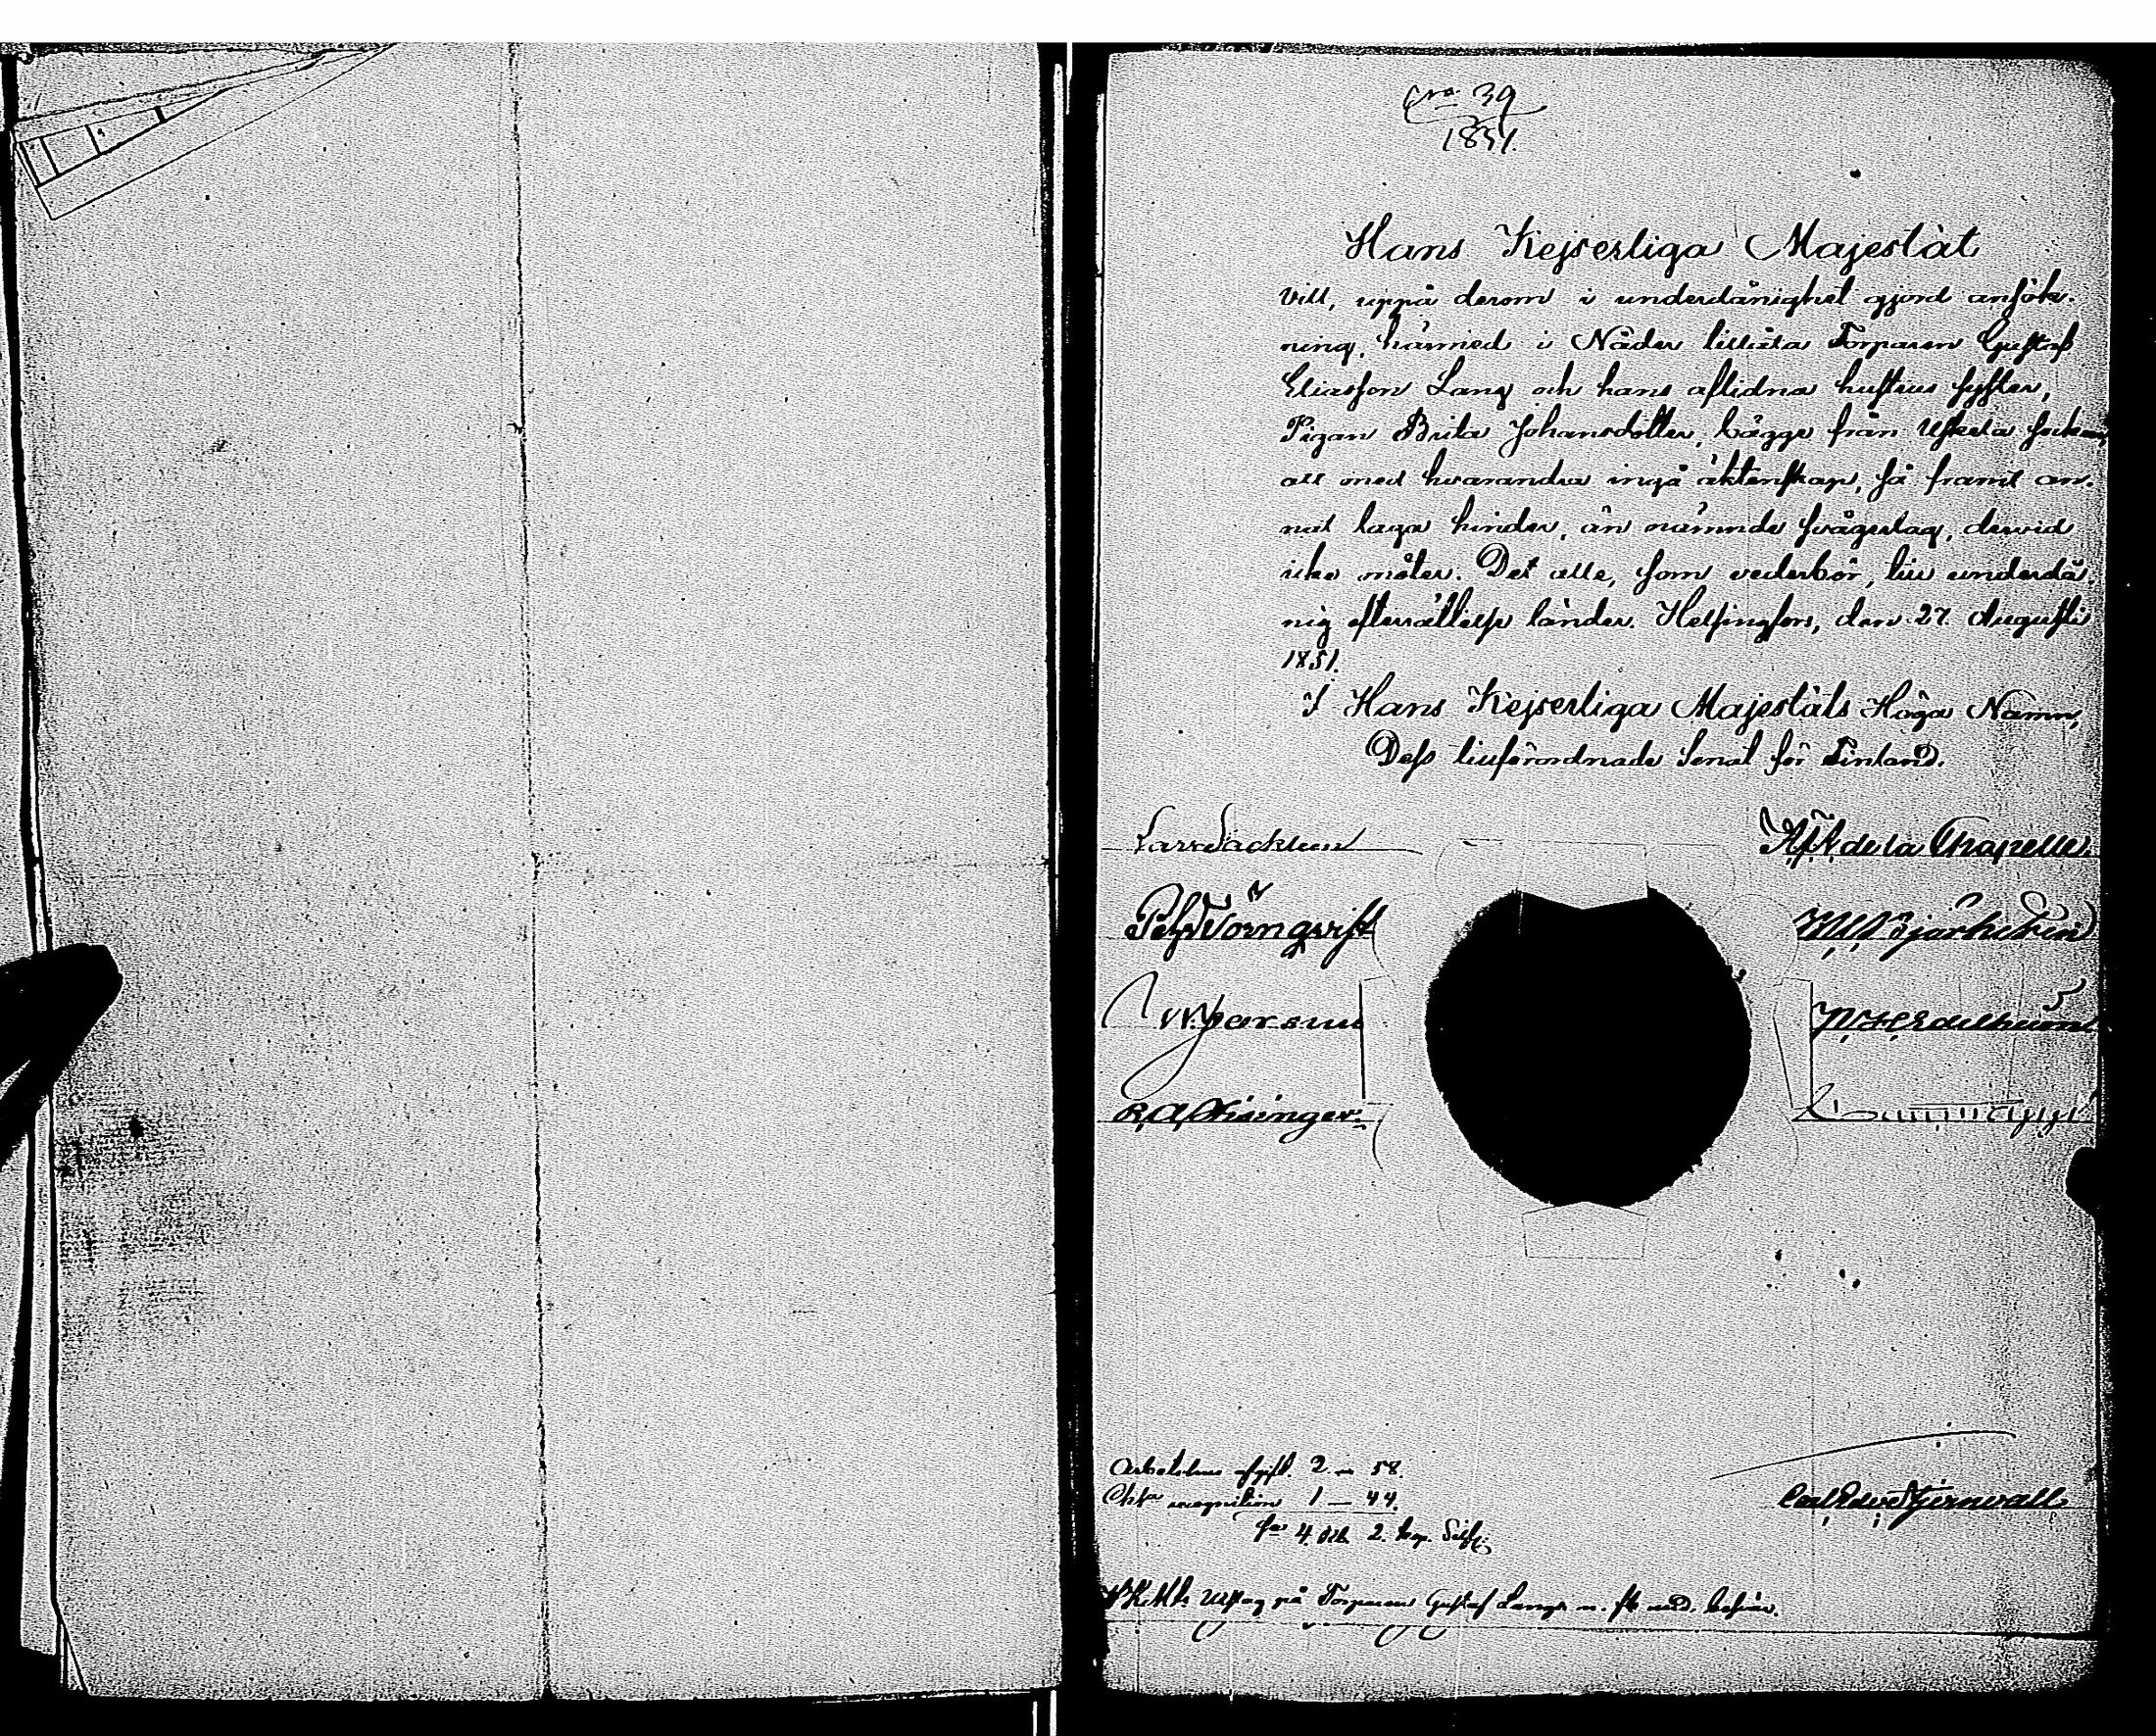 39
1851.
Hans Kejserliga Majestät
vill, uppå derom i underdånighet gjord ansök-
ning, härmed i Nåder tillåta Torparen Gustaf
Eliasson Lang och hans aflidna hustrus syster,
Pigan Brita Johansdotter, bägge från Uskela socken,
att med hvarandra ingå äktenskap, så framt an-
nat laga hinder, än nämnde svågerlag, dervid
icke möter. Det alle, som vederbör, till underdå-
nig efterrättelse länder. Helsingfors, den 27. Augusti
1851.
I Hans Kejserliga Majestäts Höga Namn,
Dess tillförordnade Senat för Finland.
Lars Sacklén
de la Chapelle.
Pehr Törnqvist
Edelheim
Carl Edv. Stjernvall
Arbetshus afgift. 2 " 58.
Chtæ recognition 1 — 44.
4. Rb 2. kop. Silf.
Utslag på Torparen Gustaf Langs m. fl. und. besvär.